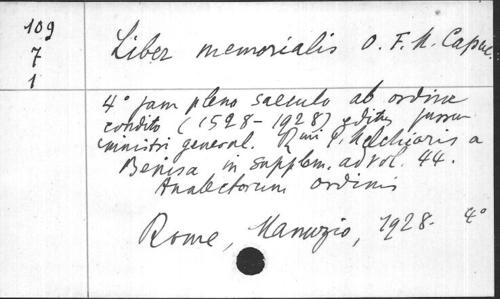 109
7
1
Liber memorialis O. F. M. Capuc.
4° jam pleno saeculo ab ordine
condito (1528-1928) editus jussu
ministri general. Rmi P. Melchioris a
Benisa in supplem. ad vol. 44.
Analectorum ordinis
Rome, Manuzio, 1928. 4°